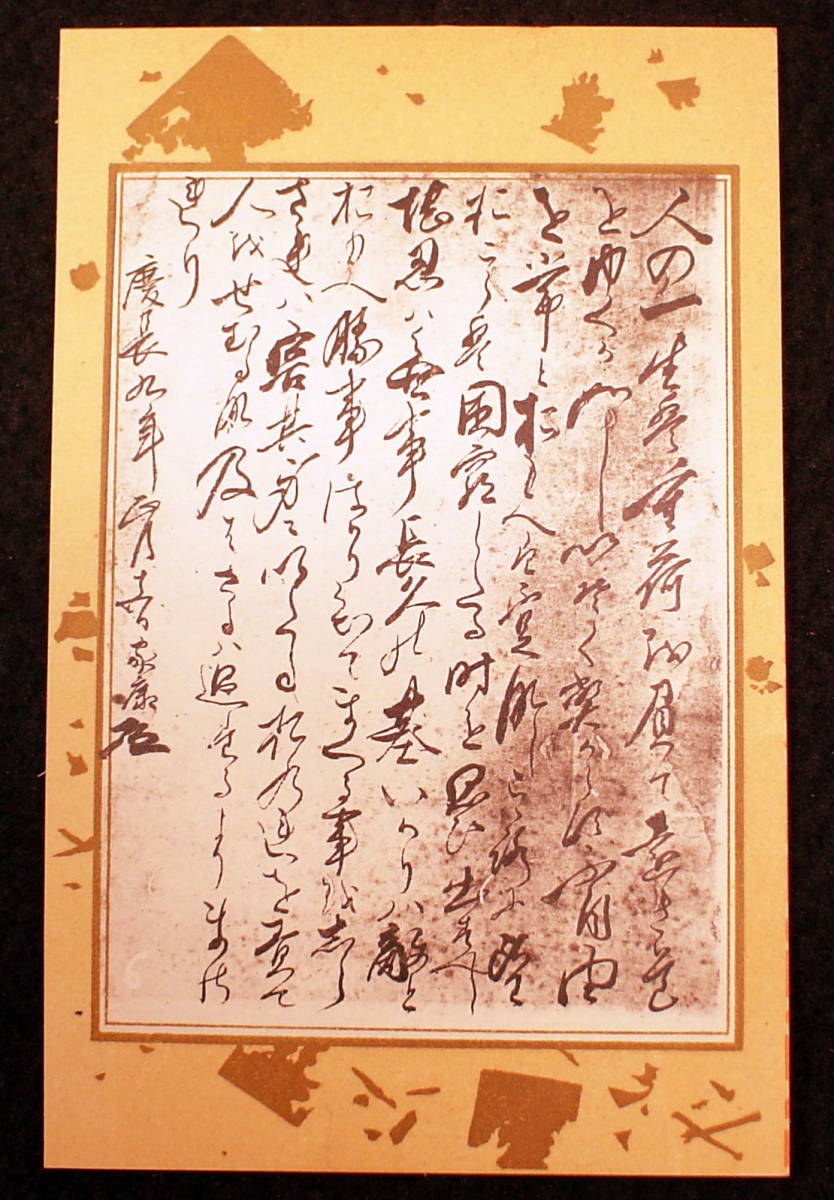 人の一生は重荷を負て遠き道
をゆくか如しいそくへからす不自由
を常とおもへは不足なしこころに望
おこらは困窮したる時を思ひ出すへし
堪忍は無事長久の基いかりは敵と
おもへ勝事はかり知てまくる事をしら
されは害其身にいたるおのれを責て
人をせむるな及はさるは過たるよりまさ
れり
慶長九年正月十五日家康